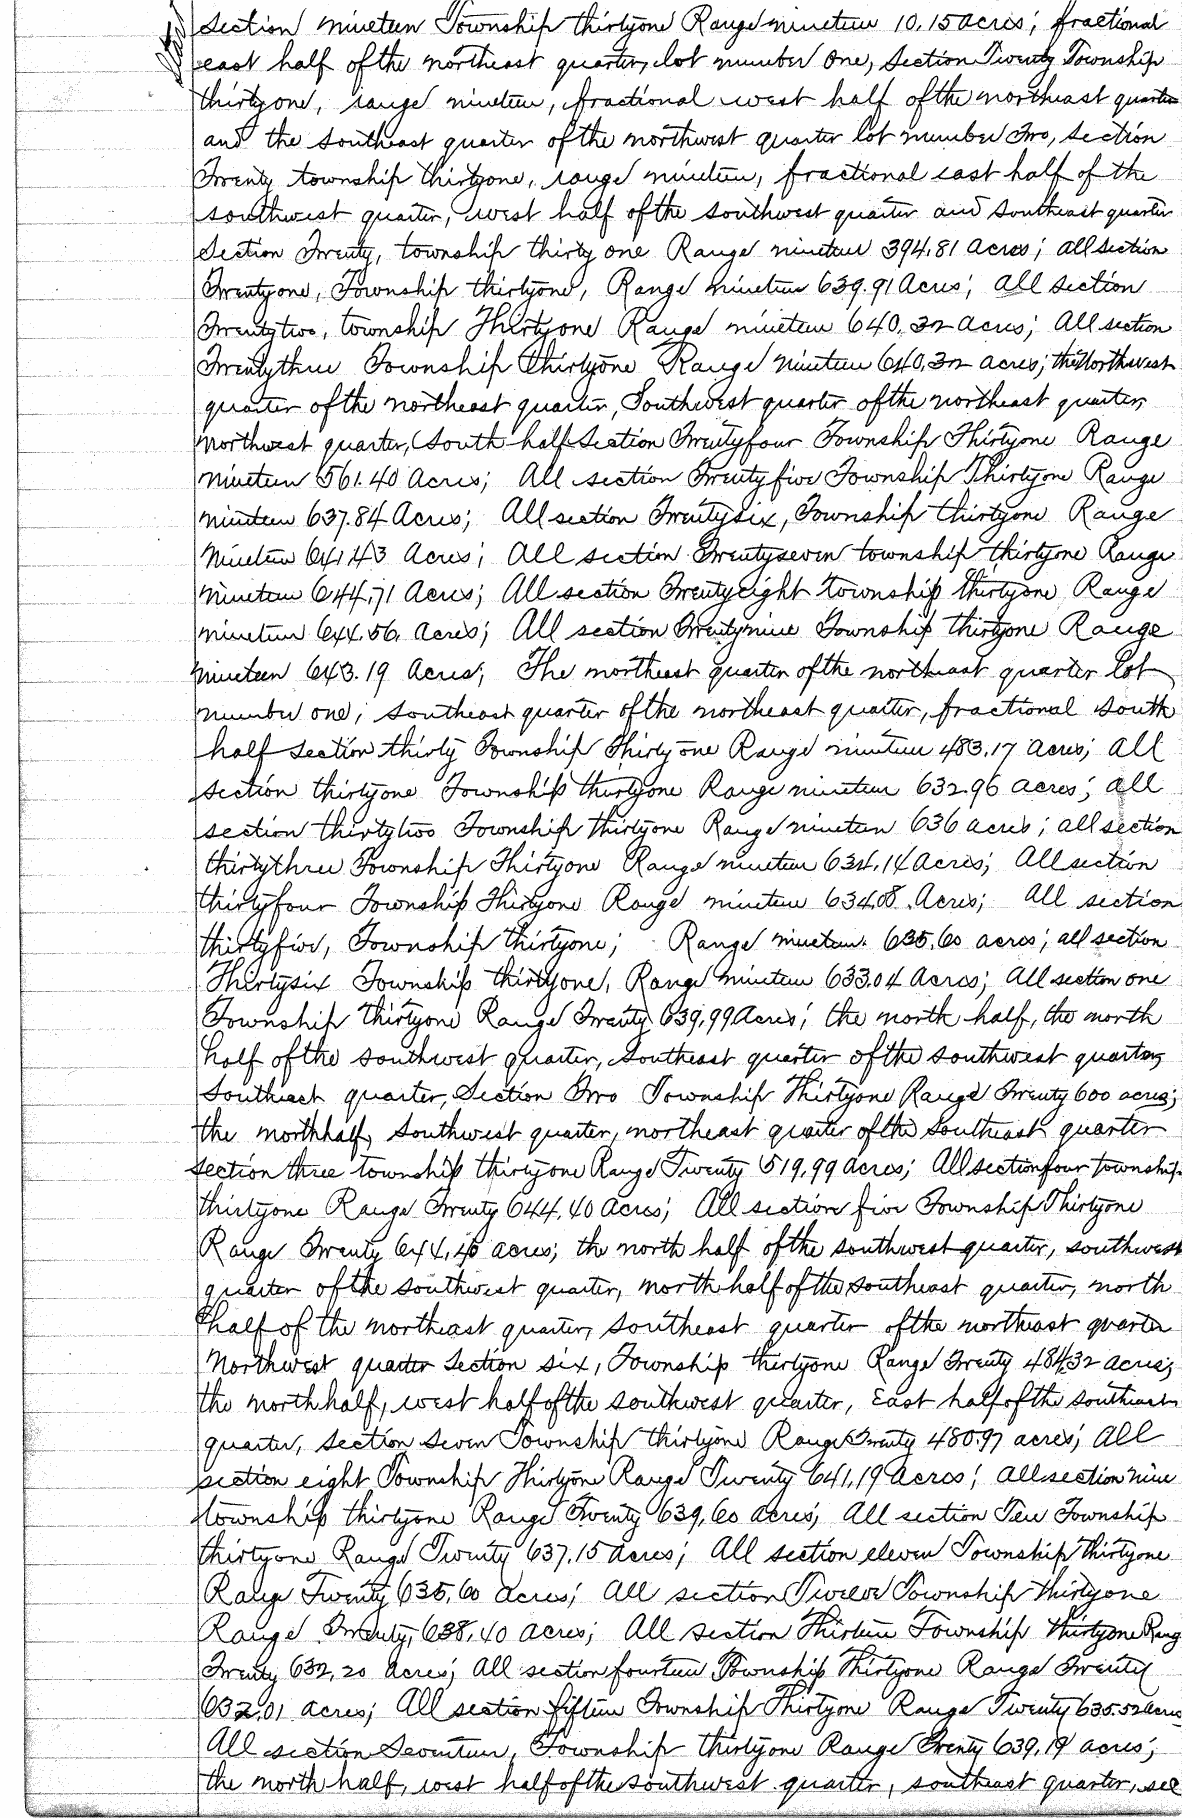 section nineteen Township thirtyone Range nineteen 10.15 acres; fractional
east half of the northeast quarter, lot number One, Section Twenty Township
thirtyone, range nineteen, fractional west half of the northeast quarter
and the southeast quarter of the northwest quarter lot number Two, section
Twenty township thirtyone, range nineteen, fractional east half of the
southwest quarter, west half of the southwest quarter and southeast quarter
Section Twenty, township thirty one Range nineteen 394.81 acres; all section
Twentyone, Township thirtyone, Range nineteen 639.91 Acres; All section
Twentytwo, township Thirtyone Range nineteen 640.32 acres; All section
Twentythree Township Thirtyone Range nineteen 640.32 acres; the Northwest
quarter of the northeast quarter, Southwest quarter of the northeast quarter,
northwest quarter, South half Section Twentyfour Township Thirtyone Range
nineteen 561.40 Acres; All section Twentyfive Township Thirtyone Range
nineteen 637.84 Acres; All section Twentysix, Township thirtyone Range
nineteen 641.43 Acres; All section Twentyseven township thirtyone Range
nineteen 644.71 Acres; All section Twentyeight township thirtyone Range
nineteen 644.56. acres; All section Twentynine Township thirtyone Range
nineteen 643.19 Acres; The northeast quarter of the northeast quarter lot
number one; southeast quarter of the northeast quarter, fractional south
half section thirty Township Thirty one Range nineteen 483.17 acres; all
section thirtyone Township thirtyone Range nineteen 632.96 acres; all
section thirtytwo Township thirtyone Range nineteen 636 acres; all section
thirtythree Township Thirtyone Range nineteen 634.14 Acres; All section
thirtyfour Township Thirtyone Range nineteen 634.08 Acres; All section
thirtyfive, Township thirtyone; Range nineteen. 635.60 acres; all section
Thirtysix Township thirtyone, Range nineteen 633.04 Acres; All section one
Township thirtyone Range Twenty 639.99 Acres; the north half, the north
half of the southwest quarter, southeast quarter of the southwest quarter,
Southeast quarter, Section Two Township Thirtyone Range Twenty 600 acres;
the north half, southwest quarter, northeast quarter of the Southeast quarter
section three township thirtyone Range Twenty 519.99 acres; All section four township
thirtyone Range Twenty 644.40 Acres; All section five Township Thirtyone
Range Twenty 644.40 acres; the north half of the southwest quarter, southwest
quarter of the southwest quarter, north half of the southeast quarter, north
half of the northeast quarter, southeast quarter of the northeast quarter
Northwest quarter Section six, Township thirtyone Range Twenty 484.32 acres;
the north half, west half of the southwest quarter, East half of the southeast
quarter, section Seven Township thirtyone Range Twenty 480.97 acres; All
section eight Township Thirtyone Range Twenty 641.19 acres; all section nine
township thirtyone Range Twenty 639.60 acres; All section Ten Township
thirtyone Range Twenty 637.15 acres; All section eleven Township thirtyone
Range Twenty 635.60 acres; All section Twelve Township thirtyone
Range Twenty, 638.40 acres; All section Thirteen Township thirtyone Rang
Twenty 632.20 acres; All section fourteen Township Thirtyone Range Twenty
632.01 acres; All section fifteen Township Thirtyone Range Twenty 635.52 acres
All section Seventeen, Township thirtyone Range Twenty 639.19 acres;
the north half, west half of the southwest quarter, southeast quarter, sec